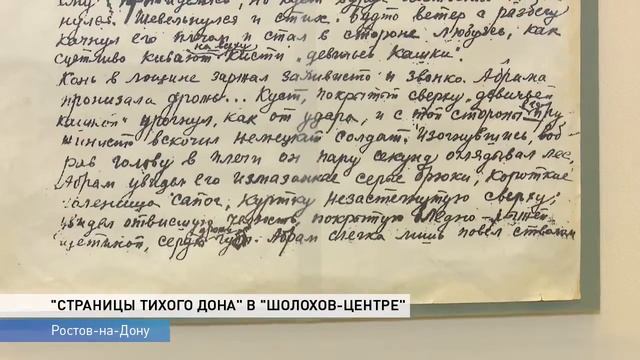 нулся. Шевельнулся и стих. Будто ветер с разбегу
качнул его плечом и стал в стороне любуясь, как
на верху
суетливо кивают кисти „девичьей кашки".
Конь в лощине заржал заливисто и звонко. Абрама
пронизала дрожь... Куст, покрытый сверху „девичьей
кашкой" прогнул, как от удара, и с той стороны
вскочил немецкий солдат. Изогнувшись,
голову в плечи он пару секунд оглядывал лес,
Абрам увидел его измазанные серые брюки, короткие
голенища сапог, куртку незастегнутую сверху;
увидел отвисшую челюсть, покрытую бледно-рыжей
щетиной, серые губы. Абрам слегка лишь повел стволом
"СТРАНИЦЫ ТИХОГО ДОНА" В "ШОЛОХОВ-ЦЕНТРЕ"
Ростов-на-Дону